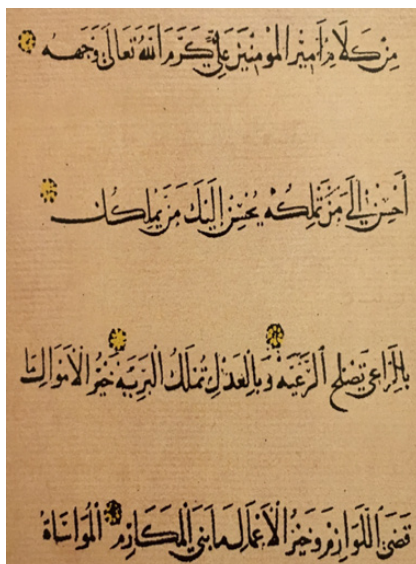 من كلام أمير المومنين علي كرم الله تعالى وجهه
أحسن إلى من تملكه يحسن إليك من يملكك
بالراعي تصلح الرعيه وبالعدل تملك البريه خير الأموال ما
قضى اللوازم وخير الأعمال ما بنى المكارم المواساة